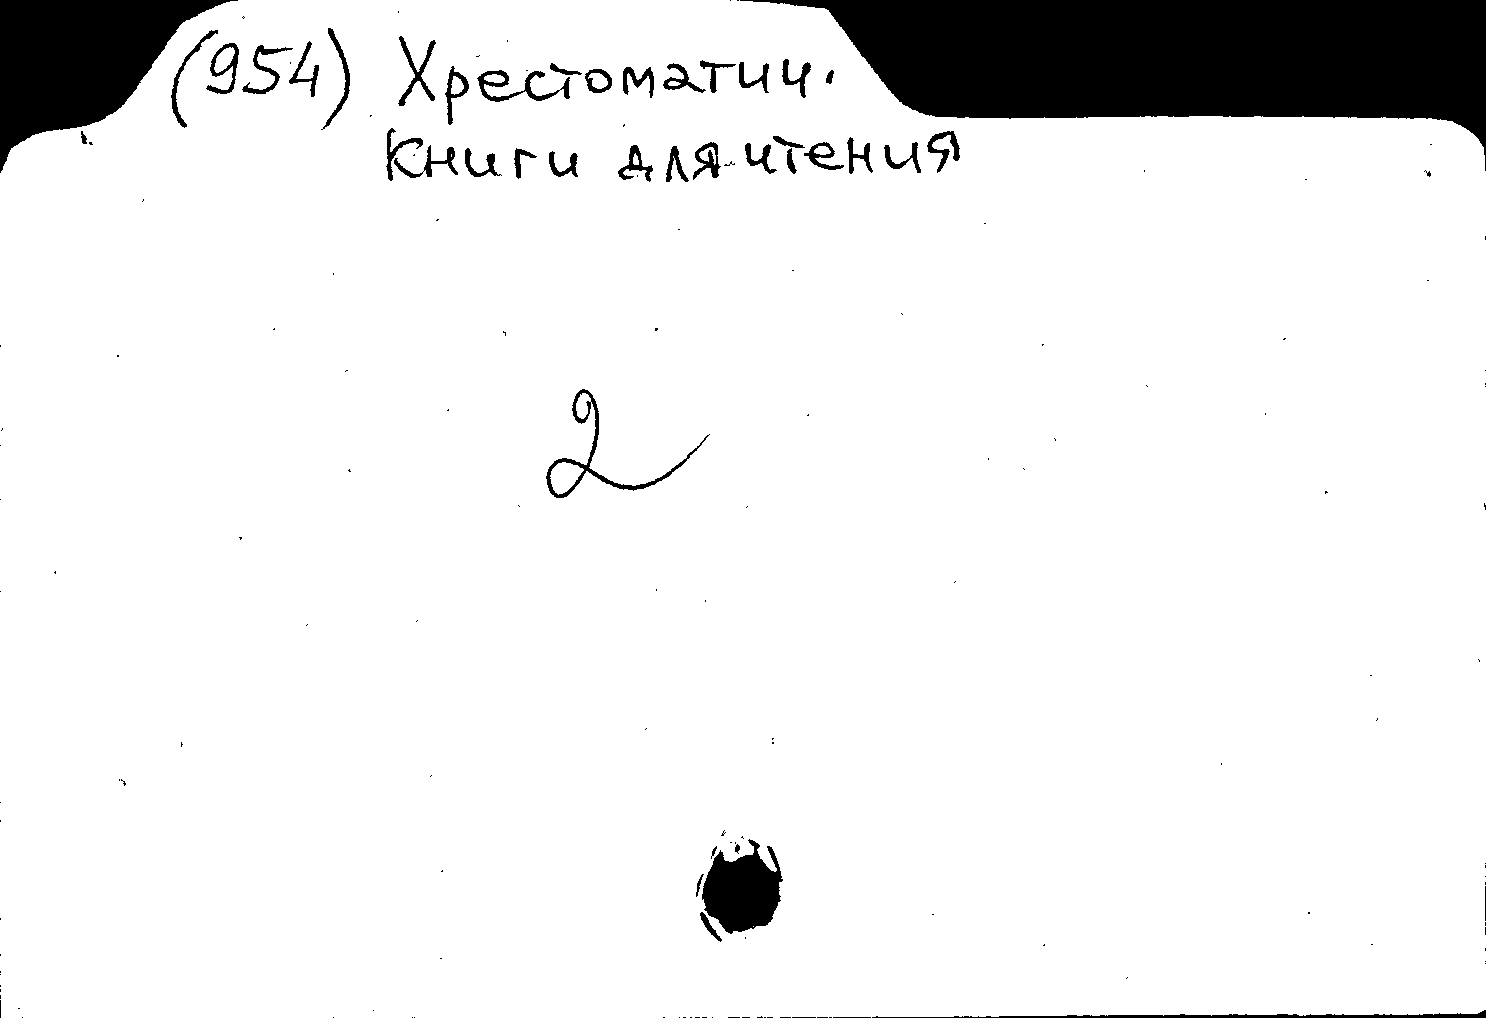 (954) Хрестоматии.
Книги для чтения
2